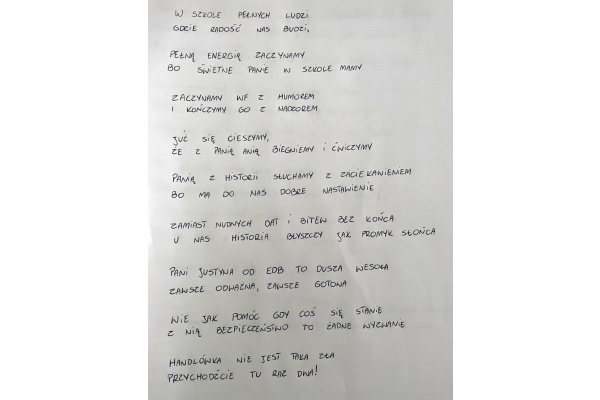 W SZKOLE PEŁNYCH LUDZI
GDZIE RADOŚĆ NAS BUDZI,
PEŁNĄ ENERGIĄ ZACZYNAMY
BO ŚWIETNE PANIE W SZKOLE MAMY
ZACZYNAMY WF Z HUMOREM
I KOŃCZYMY GO Z NADZOREM
JUŻ SIĘ CIESZYMY,
ŻE Z PANIĄ ANIĄ BIEGNIEMY I ĆWICZYMY
PANIĄ Z HISTORII SŁUCHAMY Z ZACIEKAWIENIEM
BO MA DO NAS DOBRE NASTAWIENIE
ZAMIAST NUDNYCH DAT I BITEW BEZ KOŃCA
U NAS HISTORIA BŁYSZCZY JAK PROMYK SŁOŃCA
PANI JUSTYNA OD EDB TO DUSZA WESOŁA
ZAWSZE ODWAŻNA, ZAWSZE GOTOWA
WIE JAK POMÓC GDY COŚ SIĘ STANIE
Z NIĄ BEZPIECZEŃSTWO TO ŻADNE WYZWANIE
HANDLÓWKA NIE JEST TAKA ZŁA
PRZYCHODŹCIE TU RAZ DWA!